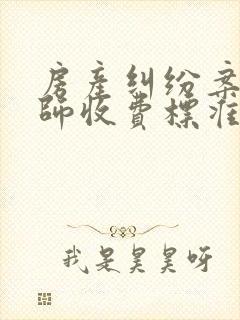 房产纠纷案
師收費標准
我是昊昊呀